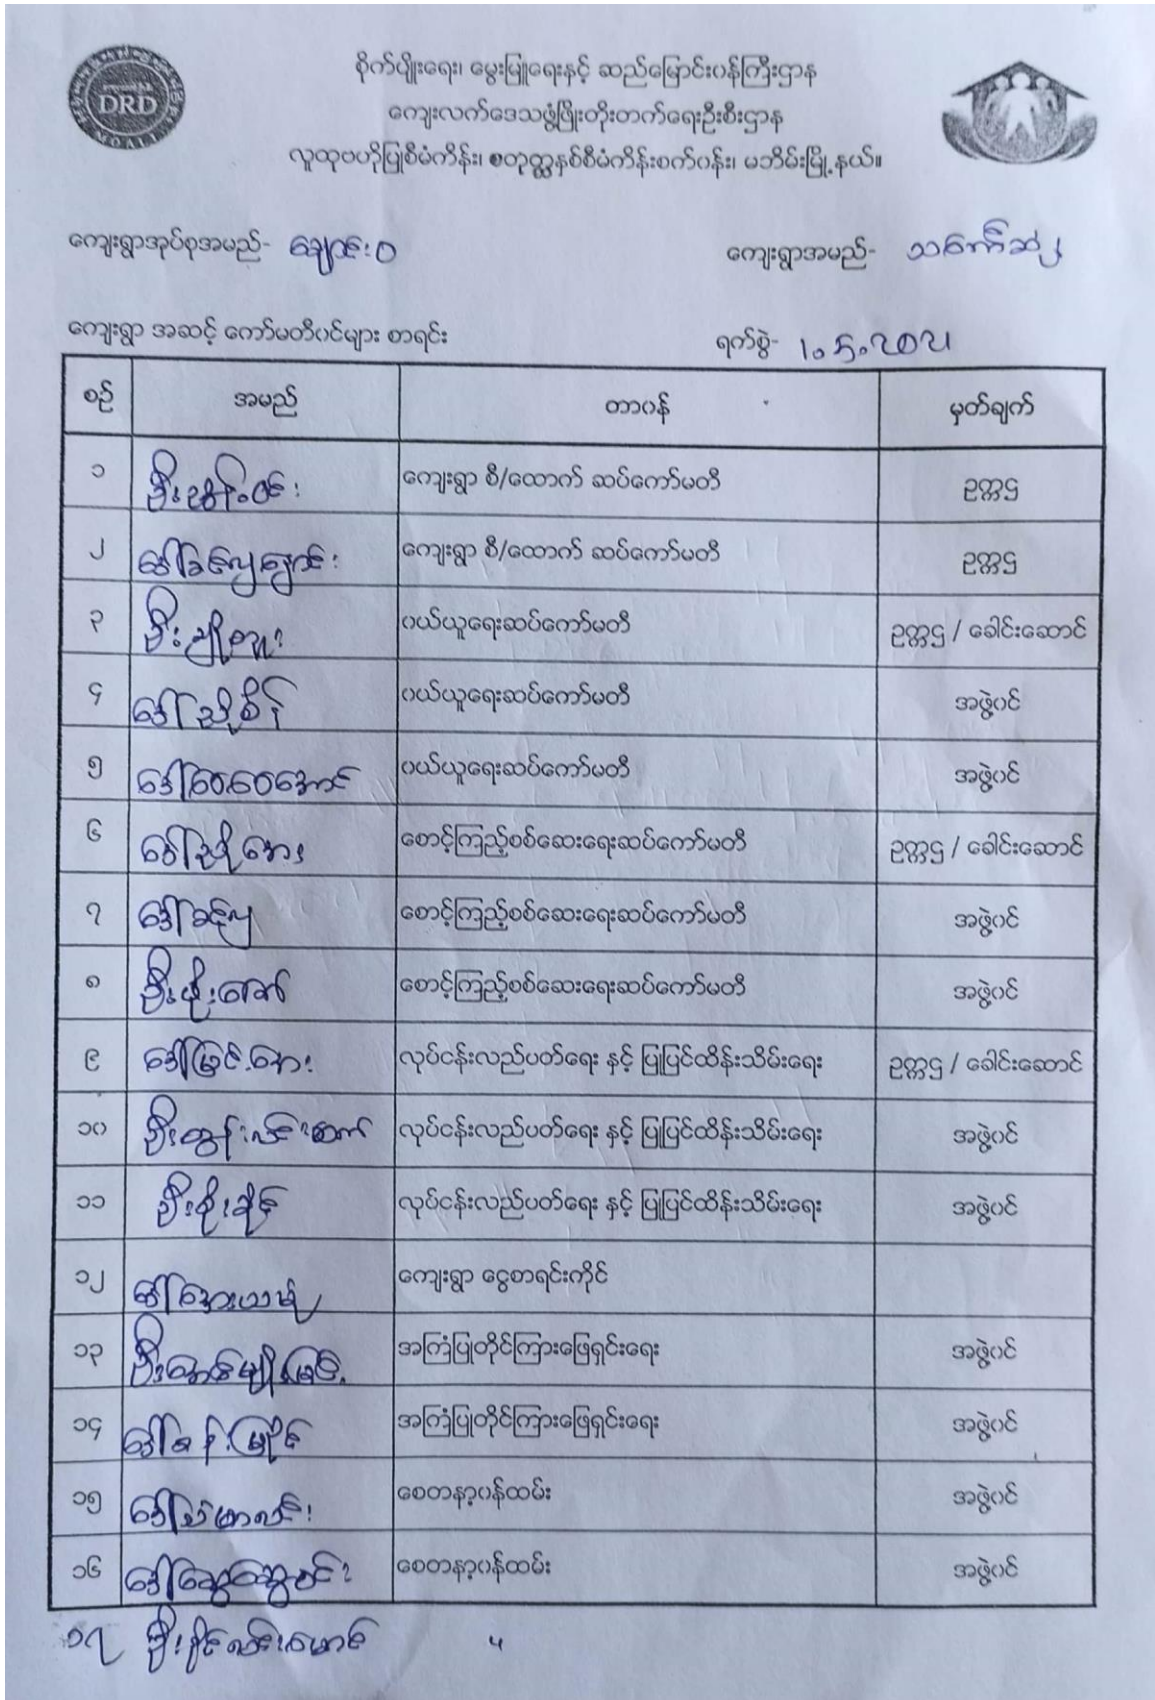 DRD
MOALI
စိုက်ပျိုးရေး၊ မွေးမြူရေးနှင့် ဆည်မြောင်းဝန်ကြီးဌာန
ကျေးလက်ဒေသဖွံ့ဖြိုးတိုးတက်ရေးဦးစီးဌာန
လူထုဗဟိုပြုစီမံကိန်း၊ စတုတ္ထနှစ်စီမံကိန်းစက်ဝန်း၊ မဘိမ်းမြို့နယ်။
ကျေးရွာအုပ်စုအမည်- ချောင်းဝ ကျေးရွာအမည်-
ကျေးရွာ အဆင့် ကော်မတီဝင်များ စာရင်း ရက်စွဲ- ၂၀၂၁
စဉ် အမည် တာဝန် မှတ်ချက်
၁ ဦးထွန်းဝင်း ကျေးရွာ စီ/ထောက် ဆပ်ကော်မတီ ဥက္ကဌ
၂ ကျေးရွာ စီ/ထောက် ဆပ်ကော်မတီ ဥက္ကဌ
၃ ဝယ်ယူရေးဆပ်ကော်မတီ ဥက္ကဌ / ခေါင်းဆောင်
၄ ဒေါ်ညိုစိန် ဝယ်ယူရေးဆပ်ကော်မတီ အဖွဲ့ဝင်
၅ ဒေါ်ဝေဝေအောင် ဝယ်ယူရေးဆပ်ကော်မတီ အဖွဲ့ဝင်
၆ ဒေါ်ညိုအေး စောင့်ကြည့်စစ်ဆေးရေးဆပ်ကော်မတီ ဥက္ကဌ / ခေါင်းဆောင်
၇ ဒေါ်ခင်လှ စောင့်ကြည့်စစ်ဆေးရေးဆပ်ကော်မတီ အဖွဲ့ဝင်
၈ စောင့်ကြည့်စစ်ဆေးရေးဆပ်ကော်မတီ အဖွဲ့ဝင်
၉ ဒေါ်မြင့်အေး လုပ်ငန်းလည်ပတ်ရေး နှင့် ပြုပြင်ထိန်းသိမ်းရေး ဥက္ကဌ / ခေါင်းဆောင်
၁၀ လုပ်ငန်းလည်ပတ်ရေး နှင့် ပြုပြင်ထိန်းသိမ်းရေး အဖွဲ့ဝင်
၁၁ ဦးစိုးနိုင် လုပ်ငန်းလည်ပတ်ရေး နှင့် ပြုပြင်ထိန်းသိမ်းရေး အဖွဲ့ဝင်
၁၂ ကျေးရွာ ငွေစာရင်းကိုင်
၁၃ ဦးအောင်မျိုးမြင့် အကြံပြုတိုင်ကြားဖြေရှင်းရေး အဖွဲ့ဝင်
၁၄ အကြံပြုတိုင်ကြားဖြေရှင်းရေး အဖွဲ့ဝင်
၁၅ စေတနာ့ဝန်ထမ်း အဖွဲ့ဝင်
၁၆ ဒေါ်ဆွေဆွေဝင်း စေတနာ့ဝန်ထမ်း အဖွဲ့ဝင်
၁၇ "